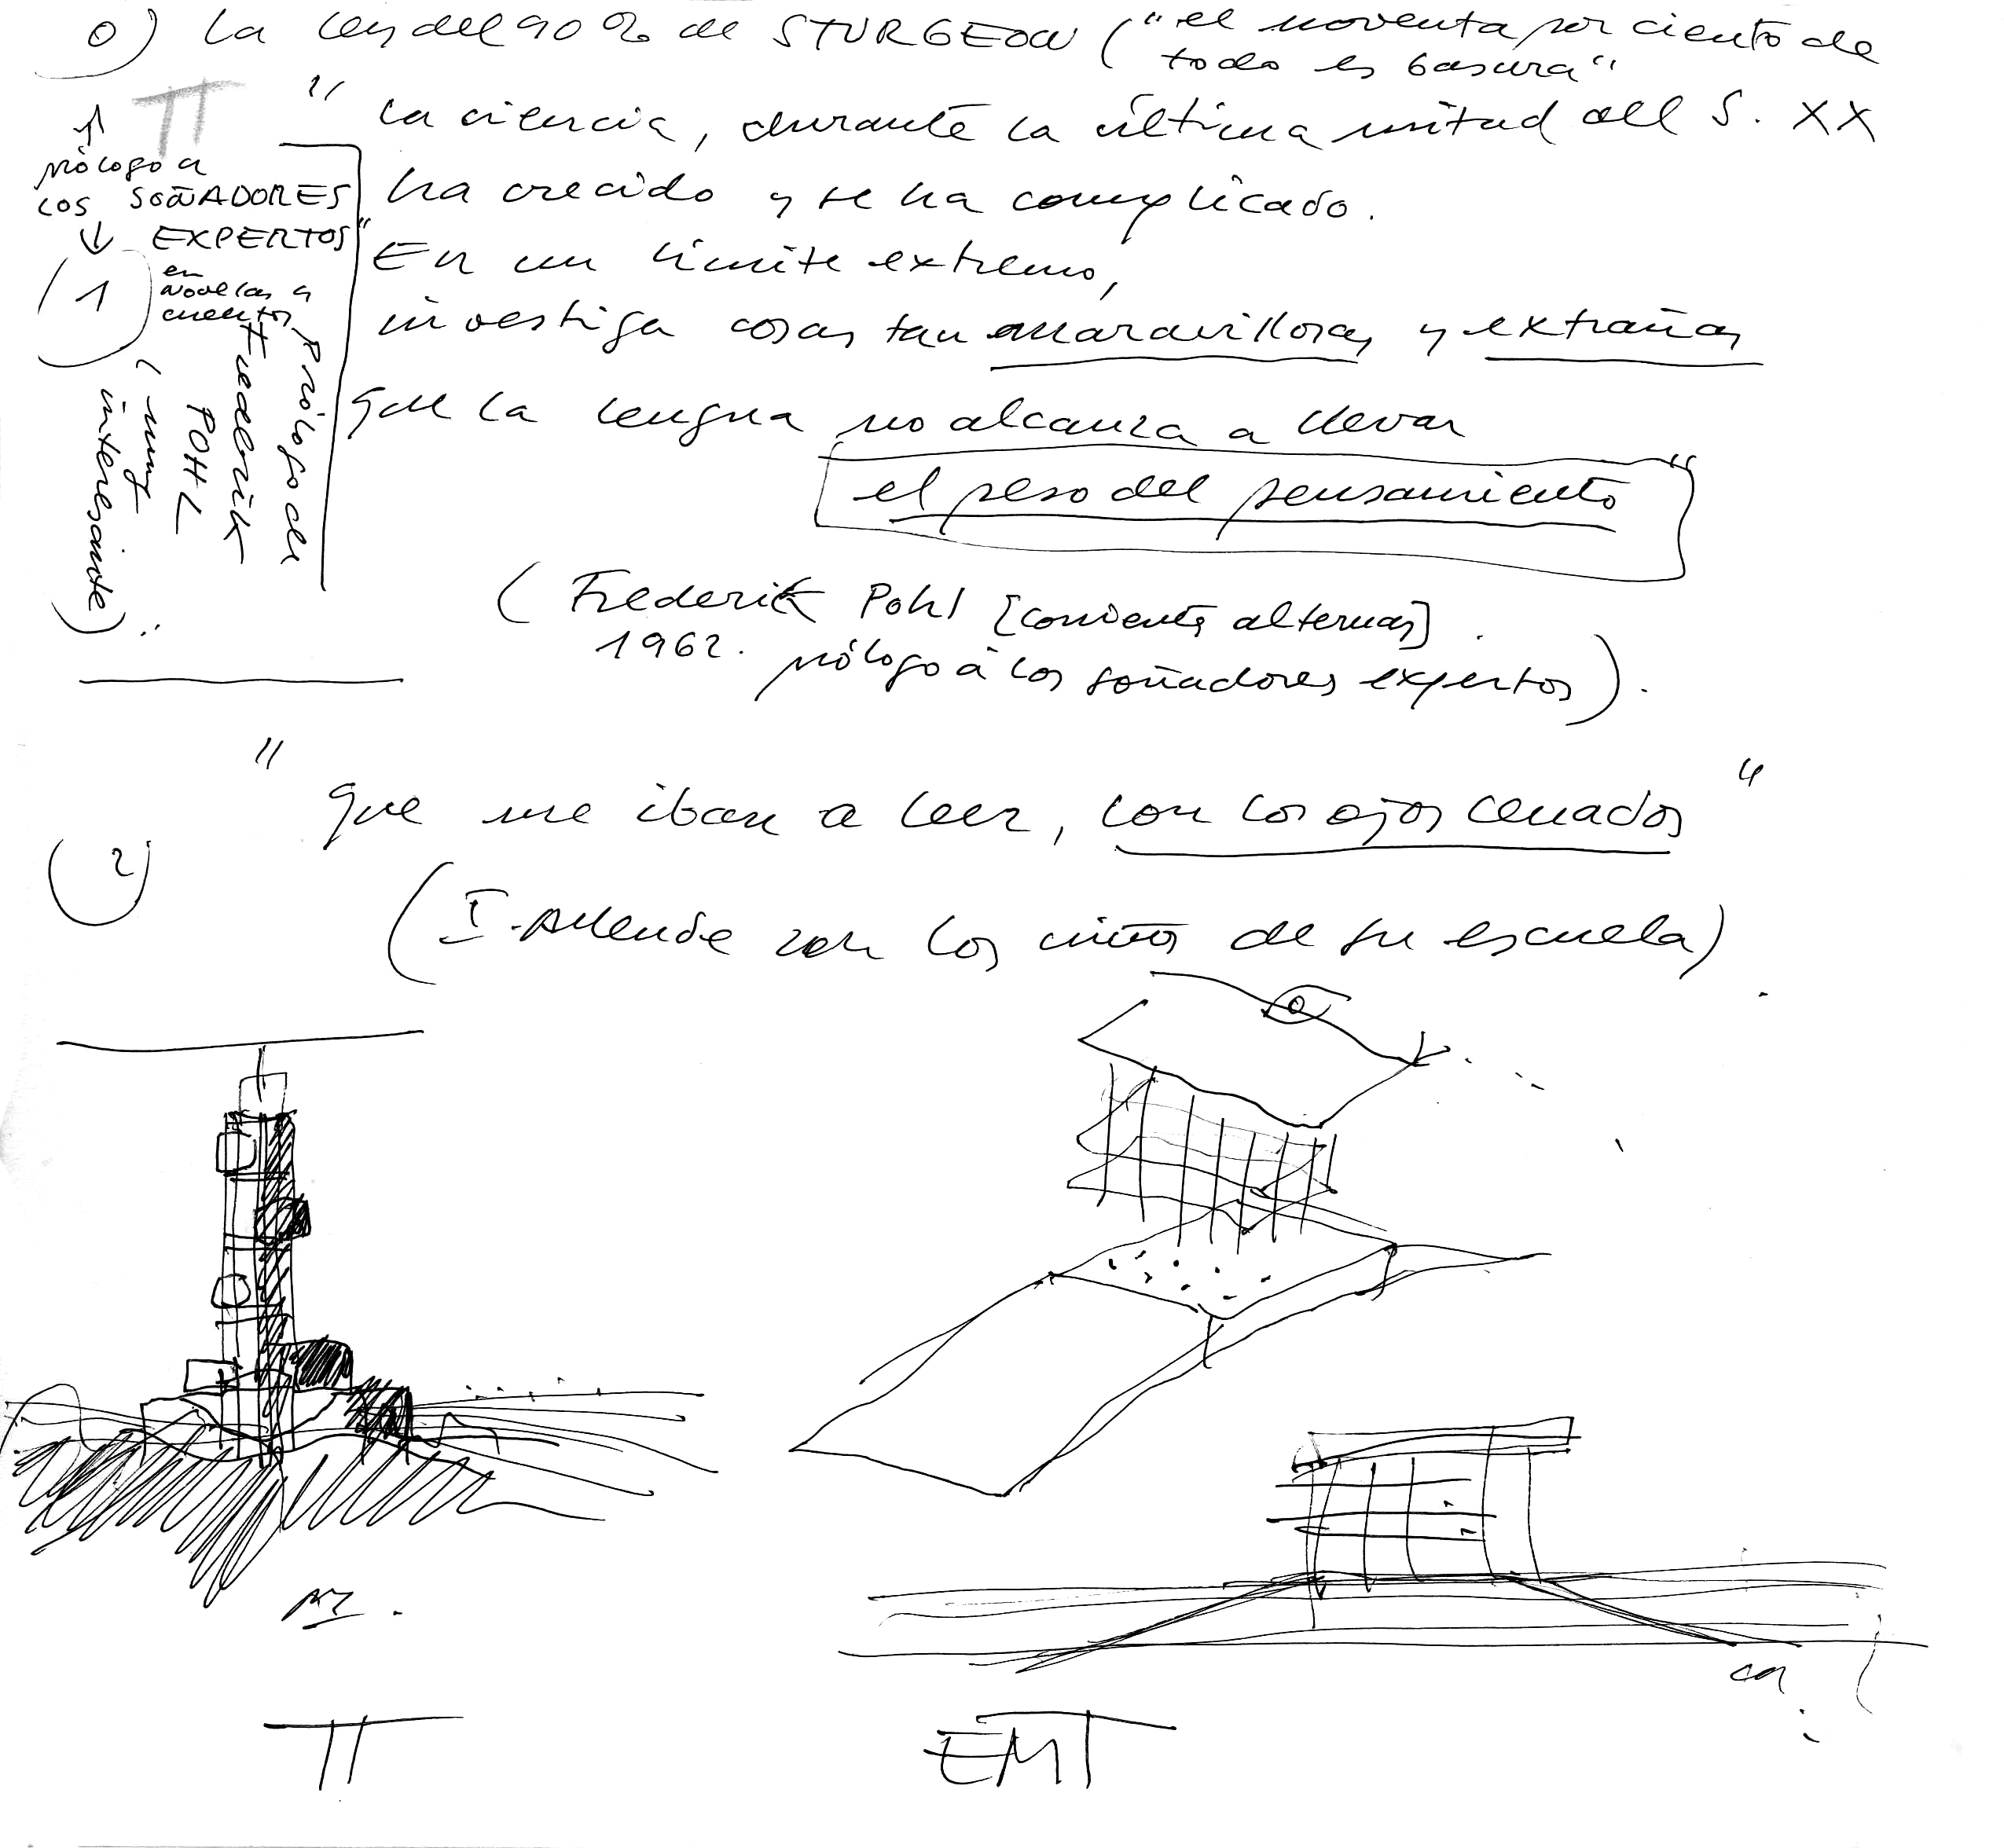 0) La ley del 90% de STURGEON ("el noventa por ciento de
todo es basura"
TT
" La ciencia, durante la última mitad del S. XX
ha crecido y se ha complicado.
En un límite extremo,
investiga cosas tan maravillosas y extrañas
que la lengua no alcanza a llevar
el peso del pensamiento"
(Frederik Pohl [corriente alternas]
1962. prólogo a los soñadores expertos).
prólogo a
LOS SOÑADORES
EXPERTOS"
1
en
novelas y
cuentos
Prólogo de
Frederik
POHL
(muy
interesante)
"que me iban a leer, con los ojos cerrados"
2
(I. Allende con los niños de su escuela).
TT
EMT